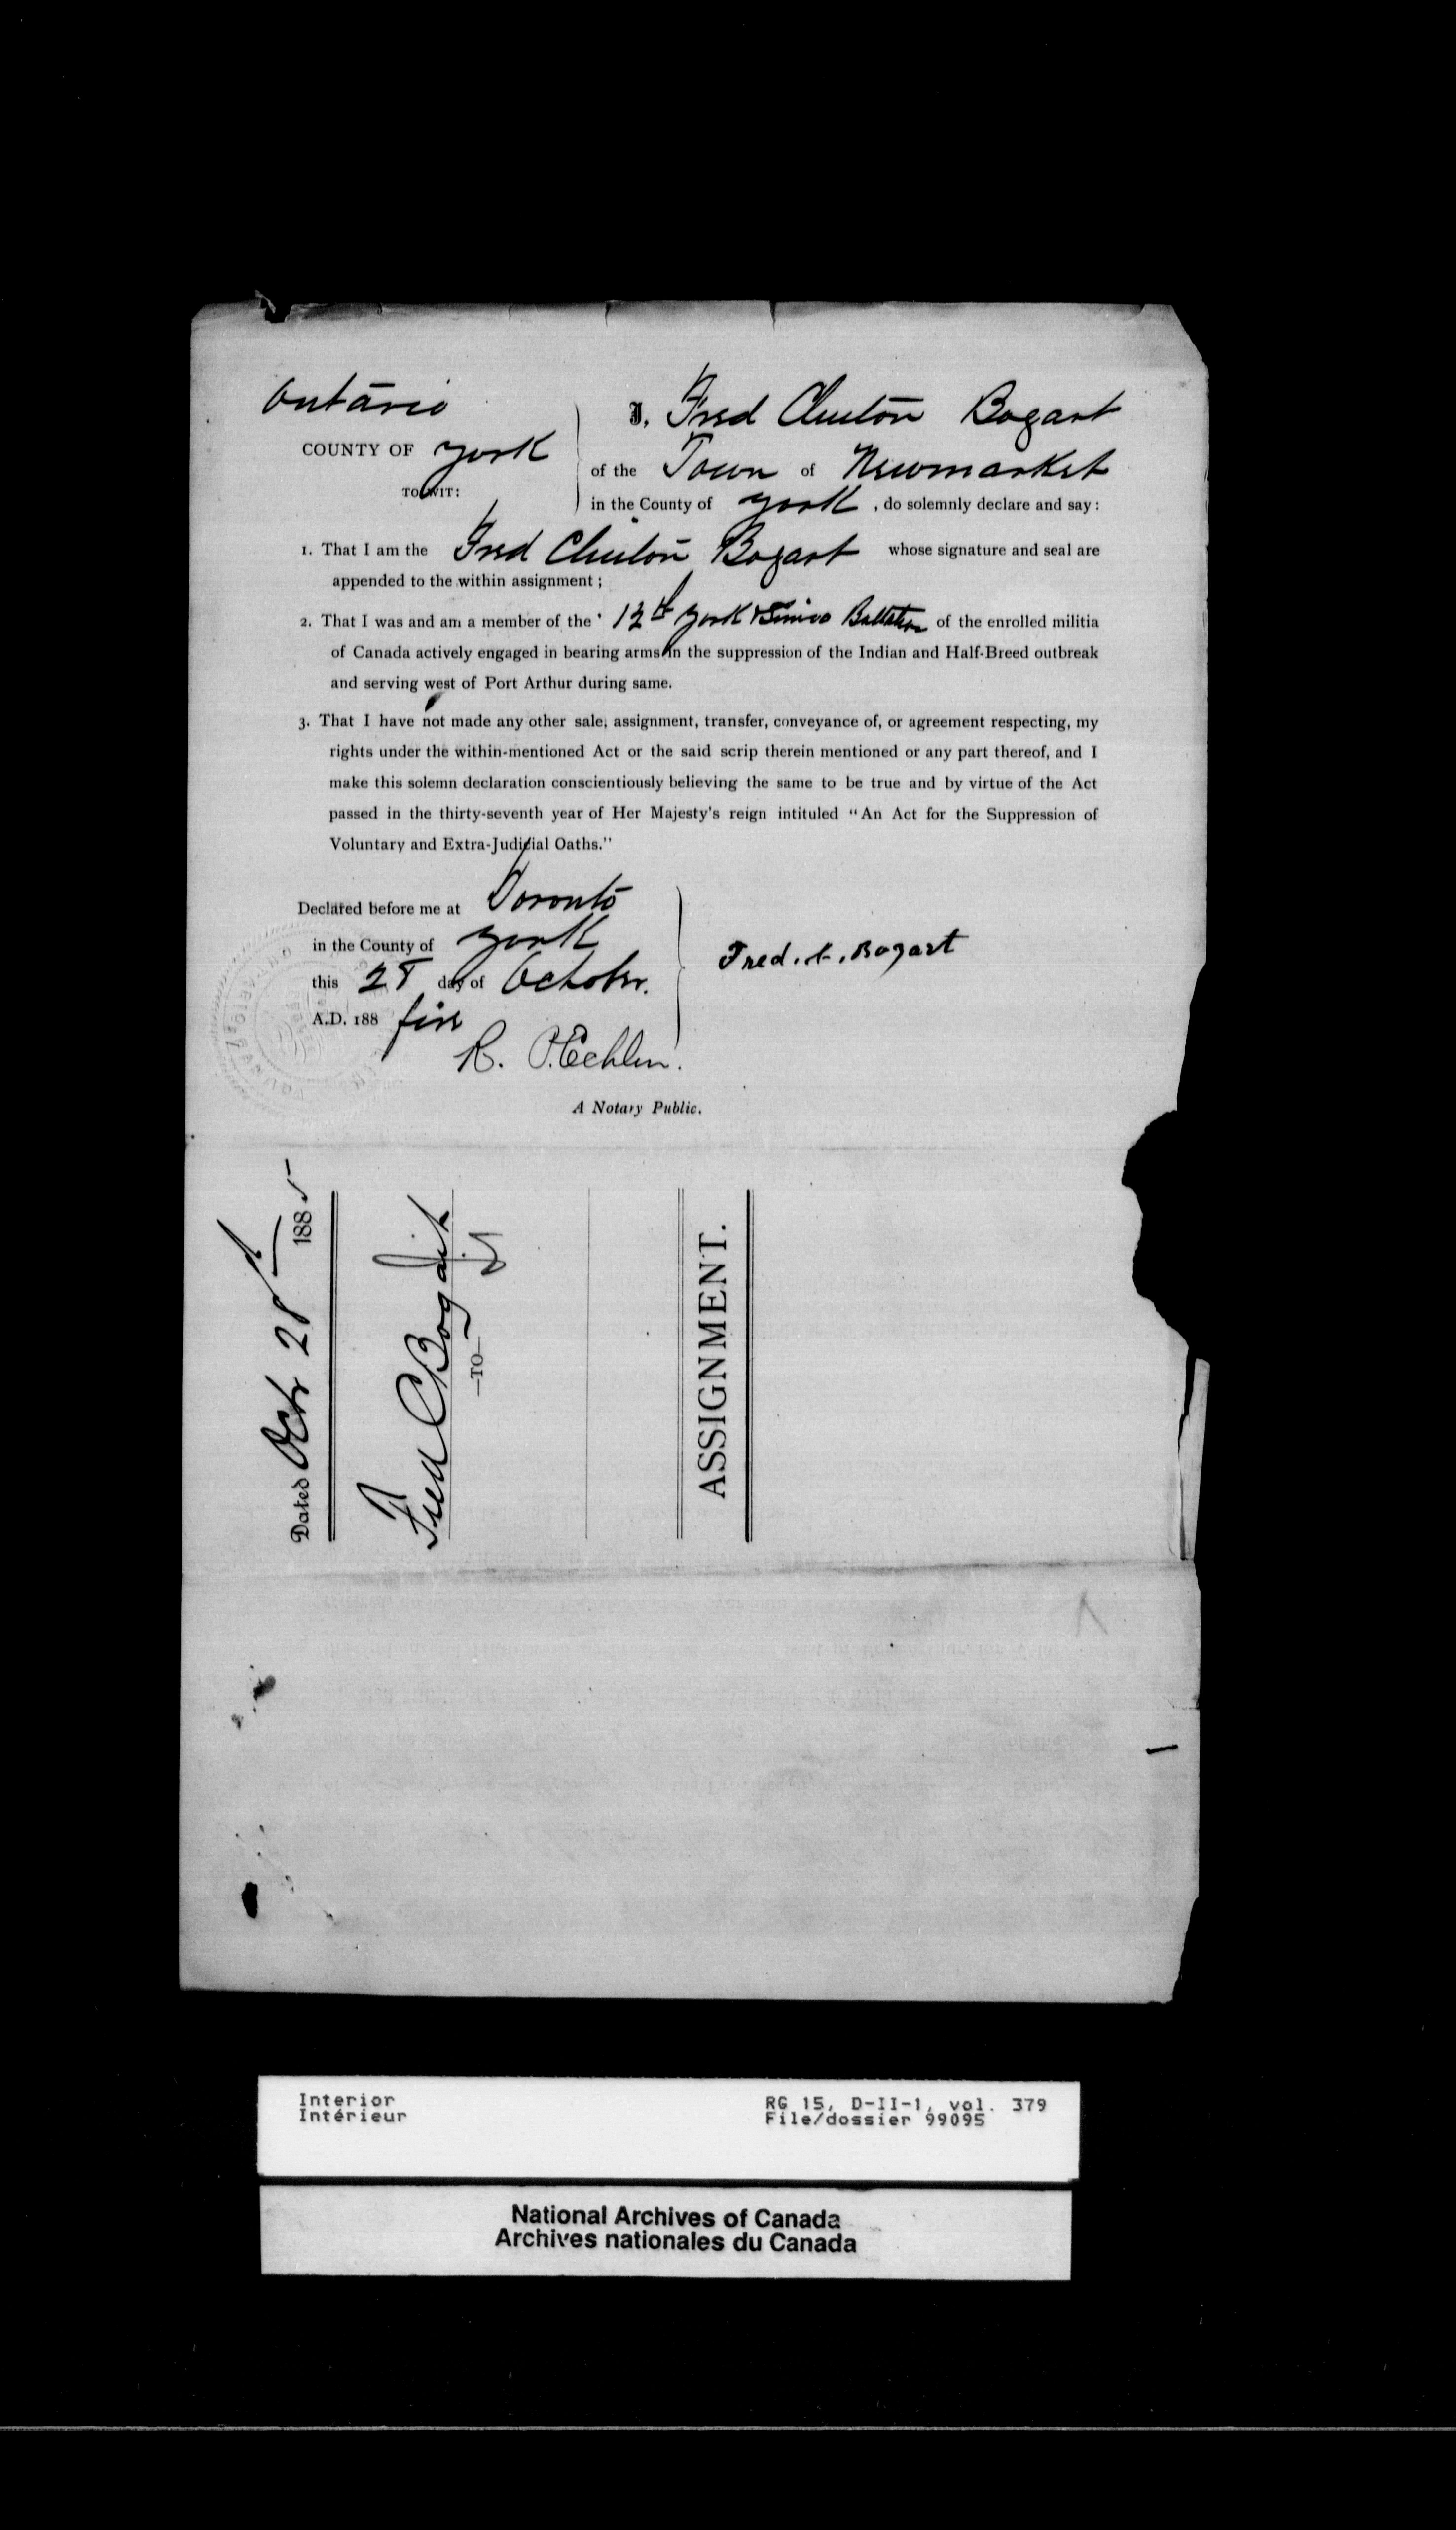 Ontario
COUNTY OF York
TO WIT:
I, Fred Clinton Bogart
of the Town of Newmarket
in the County of York , do solemnly declare and say:
1. That I am the Fred Clinton Bogart whose signature and seal are
appended to the within assignment ;
2. That I was and am a member of the 12th York & Simcoe Battalion of the enrolled militia
of Canada actively engaged in bearing arms in the suppression of the Indian and Half-Breed outbreak
and serving west of Port Arthur during same.
3. That I have not made any other sale, assignment, transfer, conveyance of, or agreement respecting, my
rights under the within-mentioned Act or the said scrip therein mentioned or any part thereof, and I
make this solemn declaration conscientiously believing the same to be true and by virtue of the Act
passed in the thirty-seventh year of Her Majesty's reign intituled "An Act for the Suppression of
Voluntary and Extra-Judicial Oaths."
Declared before me at Toronto
in the County of York
this 28 day of October.
A.D. 188 five
Fred. C. Bogart
R. P. Echlin.
A Notary Public.
Dated Octr 28 1885
Fred C Bogart
—TO—
ASSIGNMENT.
Interior
Intérieur
RG 15, D-II-1, vol. 379
File/dossier 99095
National Archives of Canada
Archives nationales du Canada